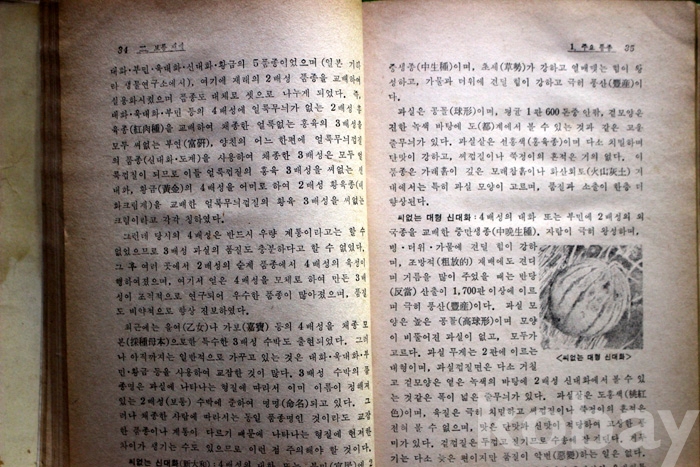 34 二 품종 해설
대화·부민·욕대화·신대화·황금의 5품종이었으며 (일본 기하
라 생물연구소에서), 여기에 재래의 2배성 품종을 교배하여
실용화시켰으며 품종도 대체로 셋으로 나누게 되었다. 즉,
대화·욕대화·부민 등의 4배성에 얼룩무늬가 없는 2배성 홍
육종(紅肉種)을 교배하여 채종한 얼룩없는 홍육의 3배성은
모두 씨없는 부연(富硏), 양친의 어느 한편에 얼룩무늬껍질
의 품종(신대화·도제)을 사용하여 채종한 3배성은 모두 얼
룩껍질이 되므로 이들 얼룩껍질의 홍육 3배성을 씨없는 신
대화, 황금(黃金)의 4배성을 어미로 하여 2배성 황육종(
화크림계)을 교배한 얼룩무늬껍질의 황육 3배성을 씨없는
크림이라고 각각 칭하였다.
그런데 당시의 4배성은 반드시 우량 계통이라고는 할 수
없었으므로 3배성 과실의 품질도 충분하다고 할 수 없었다.
그 후 여러 곳에서 2배성의 순계 품종에서 4배성의 육성이
행하여졌으며, 여기서 얻은 4배성을 모체로 하여 만든 3배
성이 조직적으로 연구되어 우수한 품종이 많아졌으며, 품질
도 비약적으로 향상 진보하였다.
최근에는 을여(乙女)나 가보(嘉寶) 등의 4배성을 채종 모
본(採種母本)으로한 특수한 3배성 수박도 출현되었다. 그러
나 아직까지는 일반적으로 가꾸고 있는 것은 대화·욕대화·부
민·황금 등을 사용하여 교잡한 것이 많다. 3배성 수박의 품
종명은 과실에 나타나는 형질에 따라서 이미 이름이 정해져
있는 2배성(보통) 수박에 준하여 명명(命名)되고 있다. 그
러나 채종한 사람에 따라서는 동일 품종명인 것이라도 교잡
한 품종이나 계통이 다르기 때문에 나타나는 형질에 현저한
차이가 생기는 수도 있으므로 이런 점 주의해야 할 것이다.
씨없는 신대화(新大和):4배성의 대화 또는 부민(富民)에 2
1. 주요 품종 35
중생종(中生種)이며, 초세(草勢)가 강하고 열매맺는 힘이 왕
성하고, 가물과 더위에 견딜 힘이 강하고 극히 풍산(豊産)이
다.
과실은 공꼴(球形)이며, 평균 1관 600돈중 안팎, 겉모양은
검한 녹색 바탕에 도(都)계에서 볼 수 있는 것과 같은 고운
줄무늬가 있다. 과실살은 선홍색(홍육종)이며 다소 치밀하며
단맛이 강하고, 씨껍질이나 쭉정이의 흔적은 거의 없다. 이
품종은 가례흙이 깊은 모래참흙이나 화산회토(火山灰土) 지
대에서는 특히 과실 모양이 고르며, 품질과 소출이 한층 더
향상된다.
씨없는 대형 신대화:4배성의 대화 또는 부민에 2배성의 외
국종을 교배한 중만생종(中晩生種). 저람이 극히 왕성하며,
병·더위·가물에 견딜 힘이 강하
며, 조방적(粗放的) 재배에도 견디
며 거름을 많이 주었을 때는 반당
(反當) 산출이 1,700관 이상에 이르
며 극히 풍산(豊産)이다. 과실 모
양은 높은 공꼴(高球形)이며 모양
이 비뚤어진 과실이 없고, 모두가
고르다. 과실 무게는 2관에 이르는
대형이며, 과실껍질면은 다소 거칠
<씨없는 대형 신대화>
고 겉모양은 엷은 녹색의 바탕에 2배성 신대화에서 볼 수 있
는 것같은 폭이 넓은 줄무늬가 있다. 과실살은 도홍색(桃紅
色)이며, 육질은 극히 치밀하고 씨껍질이나 쭉정이의 흔적은
전혀 볼 수 없으며, 맛은 단맛과 신맛이 적당하며 고상한 풍
미가 있다. 겉껍질은 두껍고 질기므로 수송에 잘 견디다. 씨
가는 다소 늦은 편이지만 품질이 악변(惡變)하는 일은 없다.